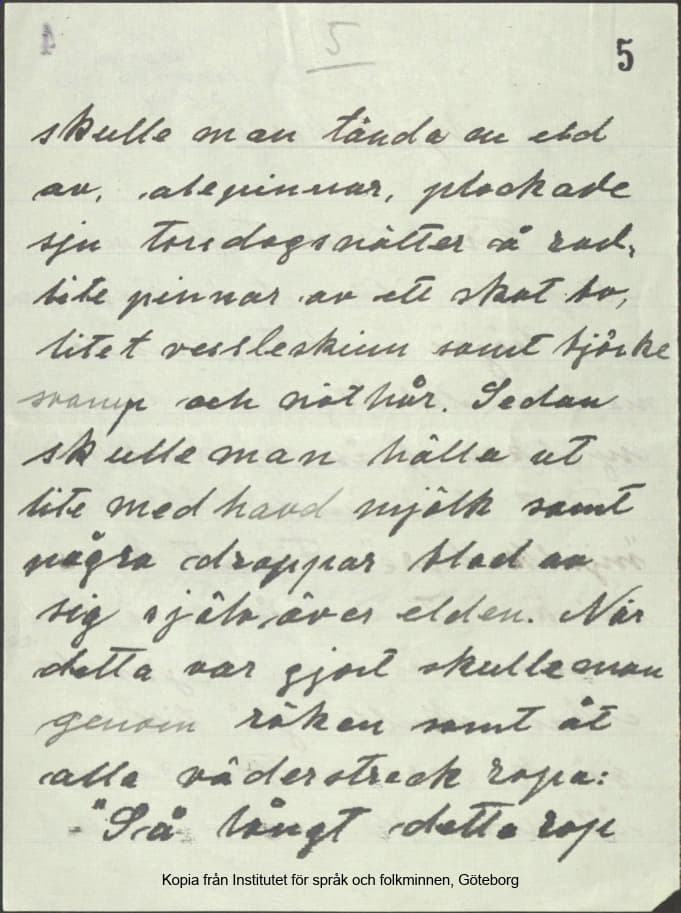 5
5
skulle man tända en eld
av alepinnar, plockade
sju torsdagsnätter å rad,
lite pinnar av ett skatbo,
litet vessleskinn samt björke
svamp och nöthår. Sedan
skulle man hälla ut
lite medhavd mjölk samt
några droppar blod av
sig själv över elden. När
detta var gjort skulle man
genom röken samt åt
alla väderstreck ropa:
"Så långt detta rop
Kopia från Institutet för språk och folkminnen, Göteborg